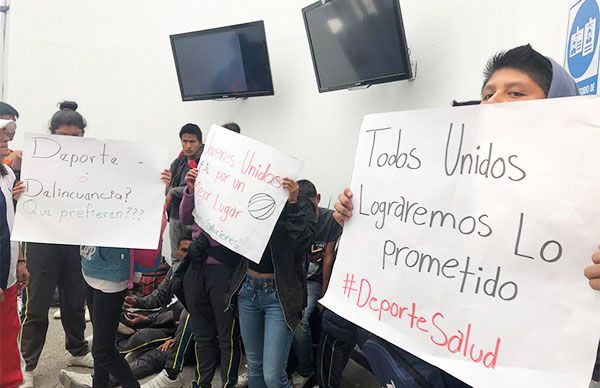 Deporte -
ó
Delincuancia?
Que prefieran???
Unidos
por un
Lugar
Todos Unidos
Lograremos Lo
prometido
#DeporteSalud